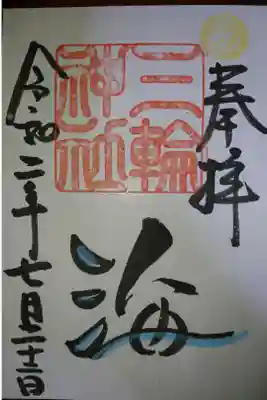 奉拝
三輪
神社
海
令和二年七月二十三日